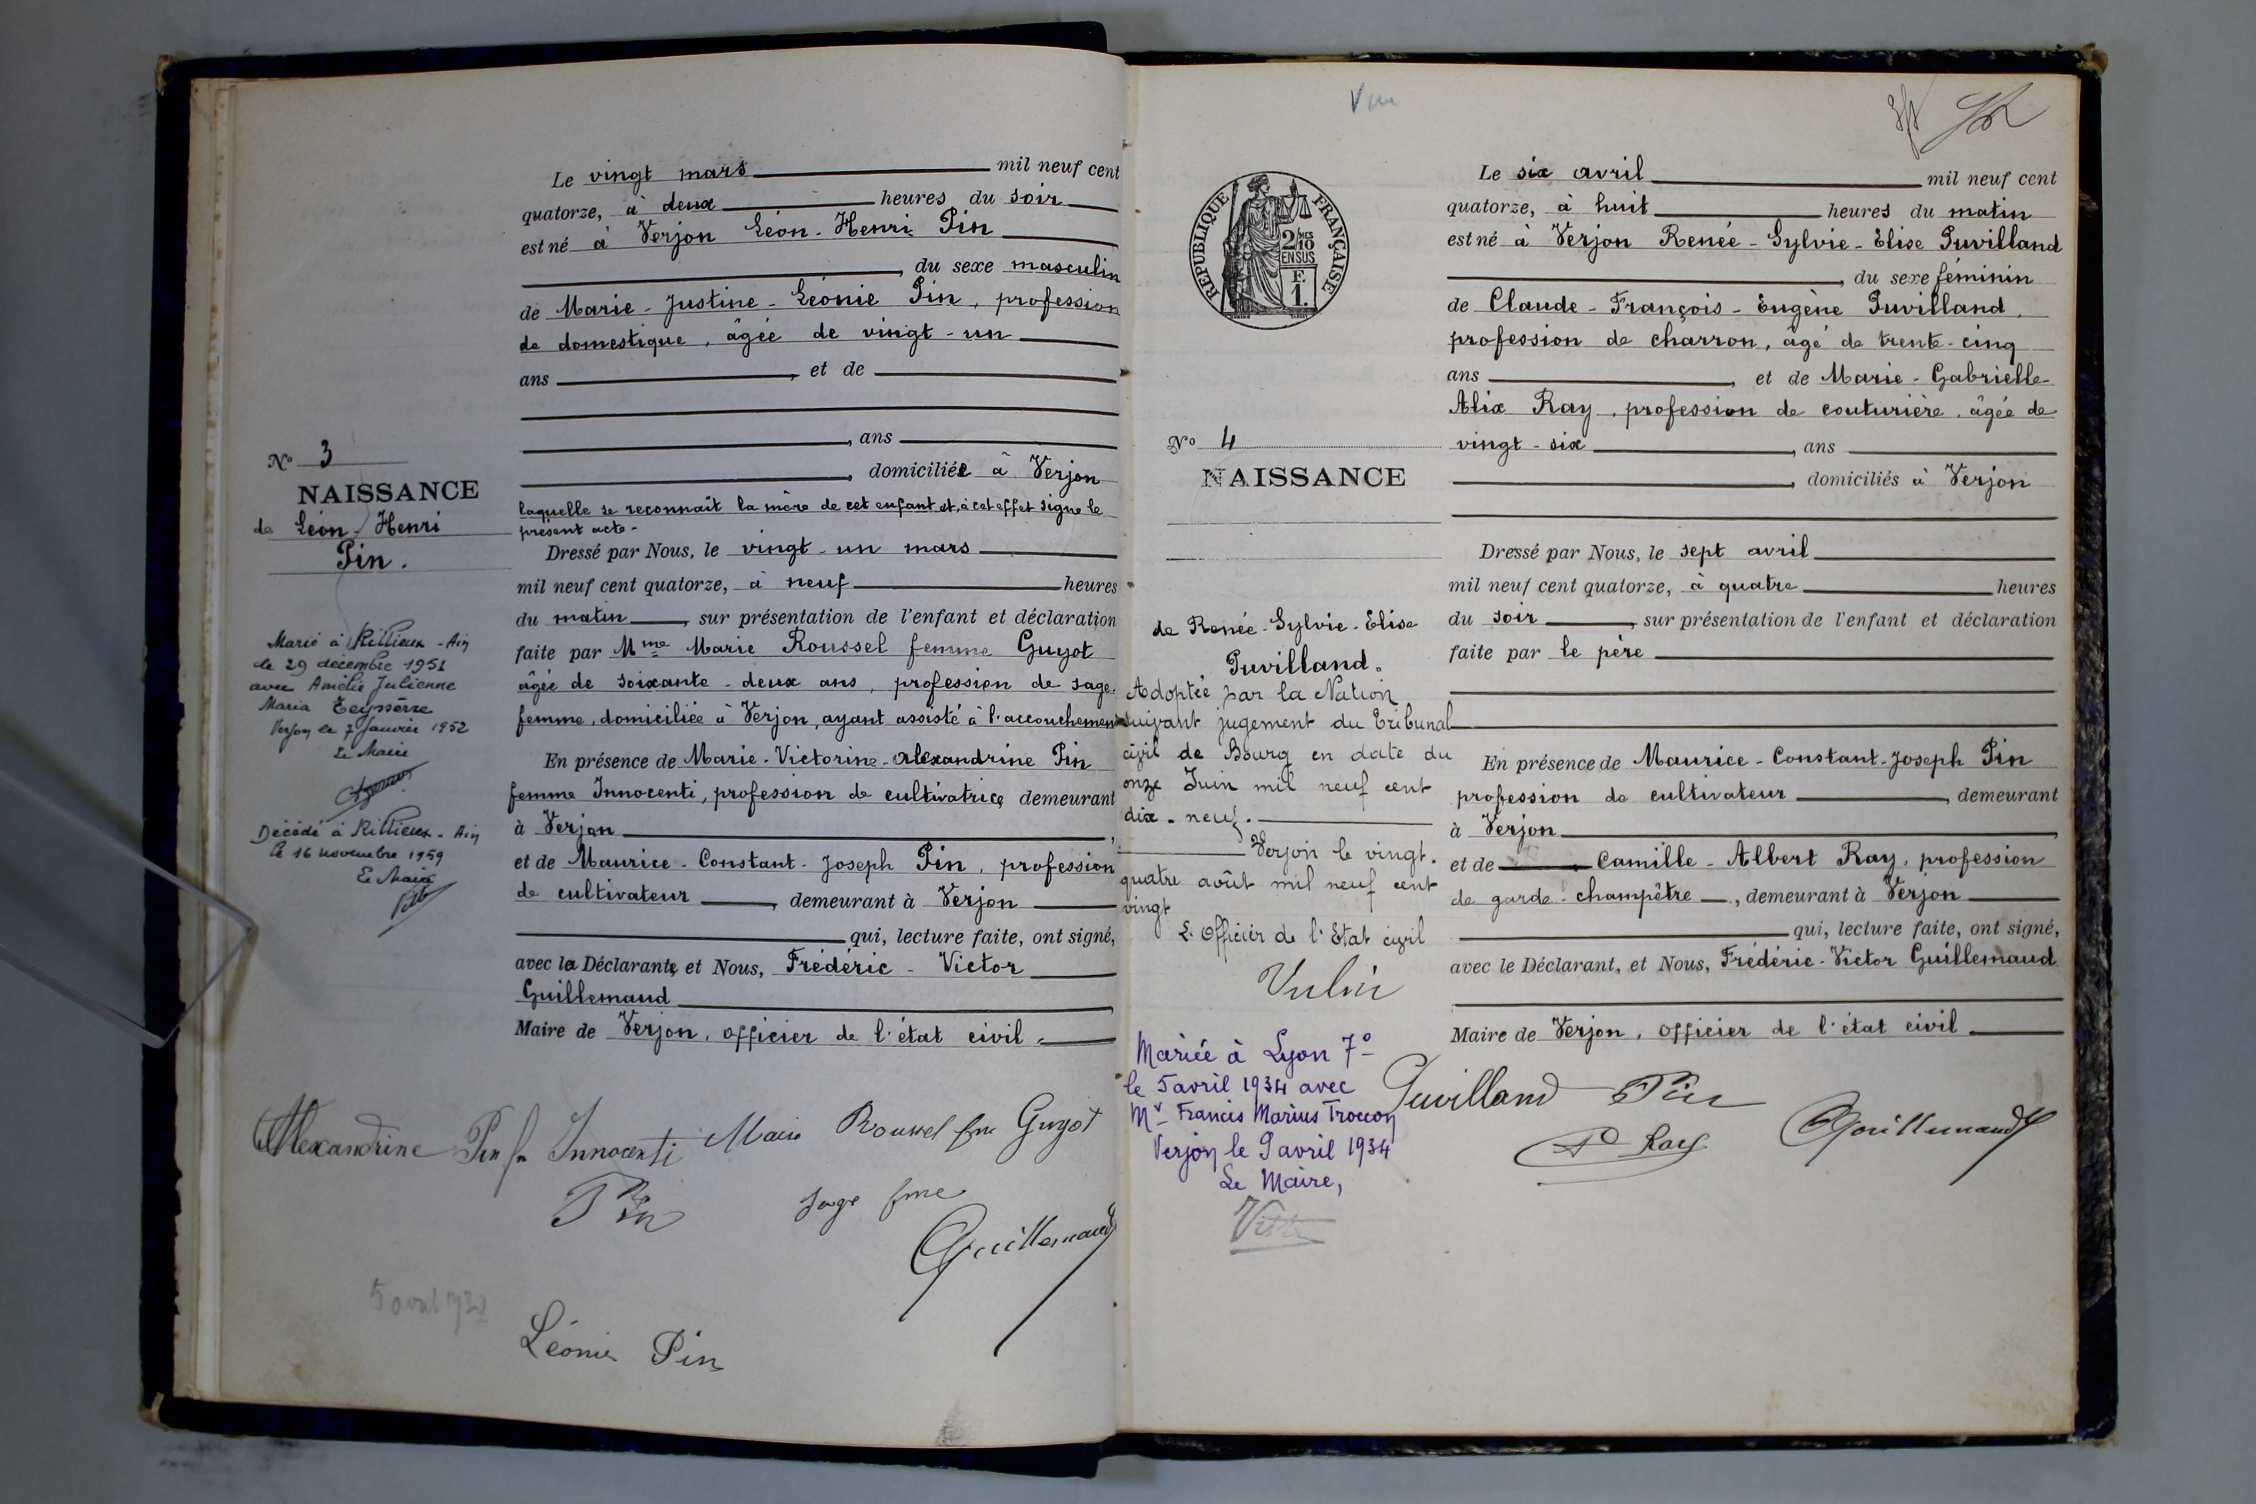 Le vingt mars mil neuf cent
quatorze, à deux heures du soir
est né à Verjon Léon-Henri Pin
, du sexe masculin
de Marie-Justine-Léonie Pin, profession
de domestique, âgée de vingt-un
ans , et de
, ans
, domiciliée à Verjon
laquelle se reconnaît la mère de cet enfant et, à cet effet signe le
présent acte-
Dressé par Nous, le vingt-un mars
mil neuf cent quatorze, à neuf heures
du matin , sur présentation de l'enfant et déclaration
faite par Mme Marie Roussel femme Guyot
âgée de soixante-deux ans, profession de sage-
femme, domiciliée à Verjon, ayant assisté à l'accouchement
En présence de Marie-Victorine-Alexandrine Pin
femme Innocenti, profession de cultivatrice demeurant
à Verjon ,
et de Maurice-Constant-Joseph Pin, profession
de cultivateur , demeurant à Verjon
qui, lecture faite, ont signé,
avec la Déclarante, et Nous, Frédéric-Victor
Guillemaud
Maire de Verjon, officier de l'état civil.
N° 3
NAISSANCE
de Léon-Henri
Pin.
Marié à Rillieux-Ain
le 29 décembre 1951
avec Amélie Julienne
Maria Teysserre
Verjon le 7 Janvier 1952
Le Maire
Décédé à Rillieux-Ain
le 16 novembre 1959
Le Maire
Alexandrine Pin fe Innocenti Marie Roussel fme Guyot
Pin sage fme
Guillemaud
5 avril
Léonie Pin
Vu
RÉPUBLIQUE FRANÇAISE
2/10
EN SUS
F.
1.
Le six avril mil neuf cent
quatorze, à huit heures du matin
est né à Verjon Renée-Sylvie-Elise Puvilland
, du sexe féminin
de Claude-François-Eugène Puvilland,
profession de charron, âgé de trente-cinq
ans , et de Marie-Gabrielle-
Alix Ray, profession de couturière, âgée de
vingt-six , ans
, domiciliés à Verjon
Dressé par Nous, le sept avril
mil neuf cent quatorze, à quatre heures
du soir , sur présentation de l'enfant et déclaration
faite par le père
En présence de Maurice-Constant-Joseph Pin
profession de cultivateur , demeurant
à Verjon ,
et de Camille-Albert Ray, profession
de garde-champêtre , demeurant à Verjon
qui, lecture faite, ont signé,
avec le Déclarant, et Nous, Frédéric-Victor Guillemaud
Maire de Verjon, officier de l'état civil
N° 4
NAISSANCE
de Renée-Sylvie-Elise
Puvilland.
Adoptée par la Nation
suivant jugement du Tribunal
civil de Bourg en date du
onze Juin mil neuf cent
dix-neuf.
Verjon le vingt-
quatre août mil neuf cent
vingt
L'Officier de l'Etat civil
Vulin
Mariée à Lyon 7°
le 5 avril 1934 avec
Mr Francis Marius Troccon
Verjon le 9 avril 1934
Le Maire,
Puvilland Pin
Ray Guillemaud